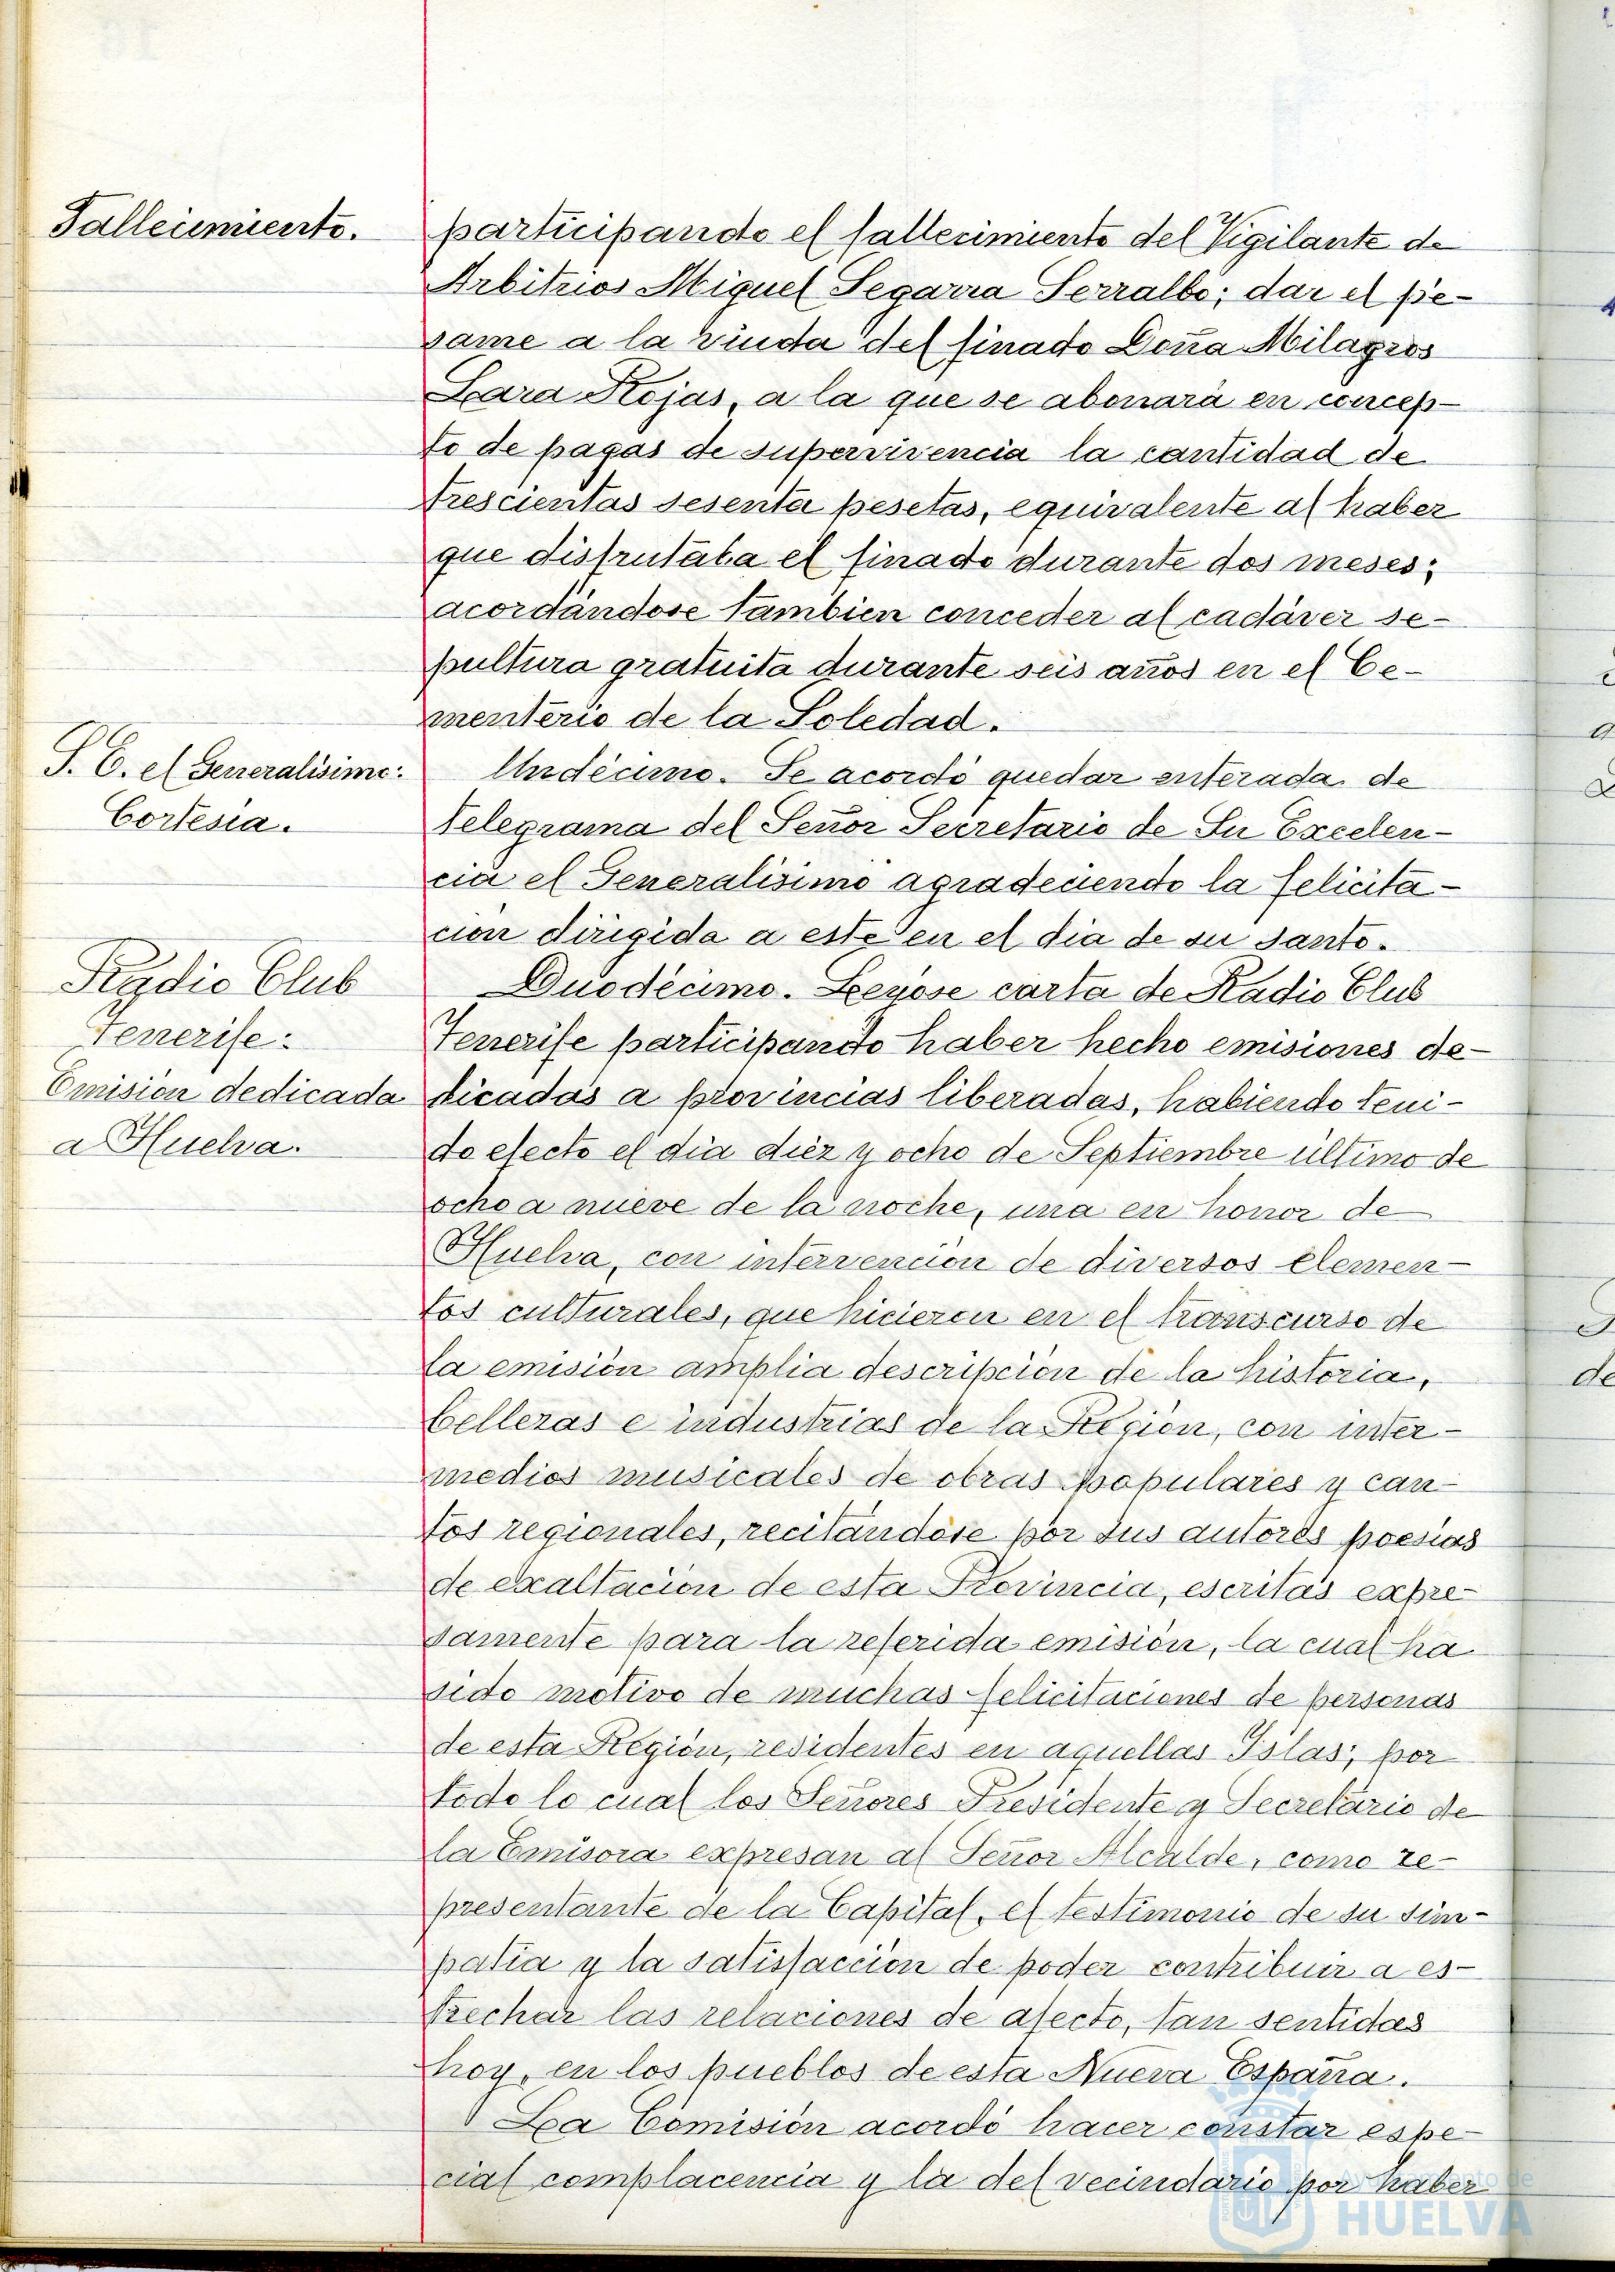 Fallecimiento.
participando el fallecimiento del Vigilante de
Arbitrios Miguel Segarra Serralbo; dar el pé-
same a la viuda del finado Doña Milagros
Lara Rojas, a la que se abonará en concep-
to de pagas de supervivencia la cantidad de
trescientas sesenta pesetas, equivalente al haber
que disfrutaba el finado durante dos meses;
acordándose tambien conceder al cadáver se-
pultura gratuita durante seis años en el Ce-
menterio de la Soledad.
S. E. el Generalísimo:
Cortesía.
Undécimo. Se acordó quedar enterada de
telegrama del Señor Secretario de Su Excelen-
cia el Generalísimo agradeciendo la felicita-
ción dirigida a este en el dia de su santo.
Radio Club
Tenerife:
Emisión dedicada
a Huelva.
Duodécimo. Leyóse carta de Radio Club
Tenerife participando haber hecho emisiones de-
dicadas a provincias liberadas, habiendo teni-
do efecto el día diez y ocho de Septiembre último de
ocho a nueve de la noche, una en honor de
Huelva, con intervención de diversos elemen-
tos culturales, que hicieron en el transcurso de
la emisión amplia descripción de la historia,
bellezas e industrias de la Región, con inter-
medios musicales de obras populares y can-
tos regionales, recitándose por sus autores poesías
de exaltación de esta Provincia, escritas expre-
samente para la referida emisión, la cual ha
sido motivo de muchas felicitaciones de personas
de esta Región, residentes en aquellas Islas; por
todo lo cual los Señores Presidente y Secretario de
la Emisora expresan al Señor Alcalde, como re-
presentante de la Capital, el testimonio de su sim-
patía y la satisfacción de poder contribuir a es-
trechar las relaciones de afecto, tan sentidas
hoy, en los pueblos de esta Nueva España.
La Comisión acordó hacer constar espe-
cial complacencia y la del vecindario por haber
Ayuntamiento de
HUELVA